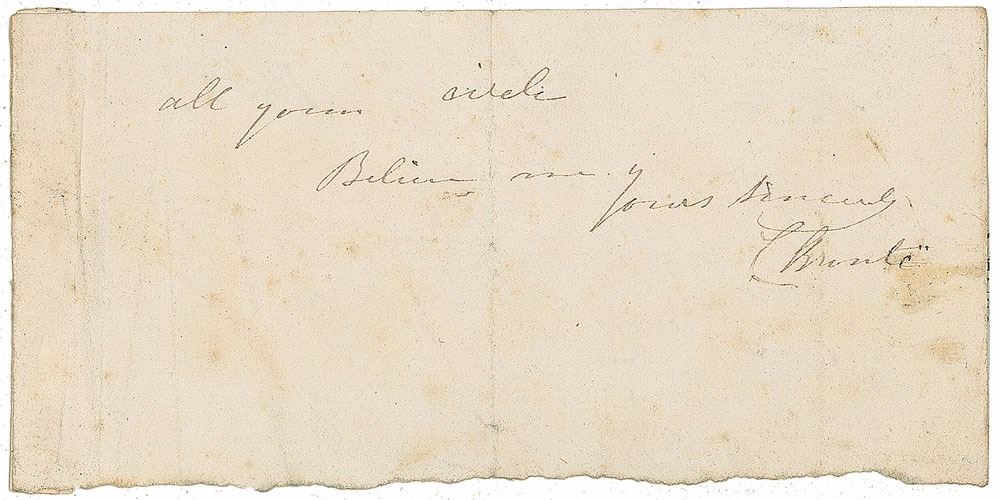 all your circle
Believe me
yours sincerely
C Brontë